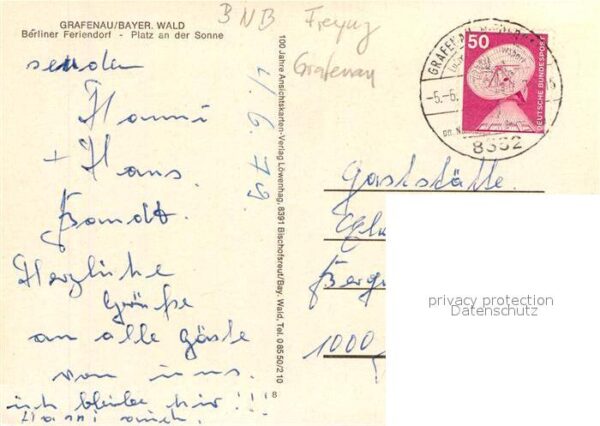 GRAFENAU/BAYER. WALD
Berliner Feriendorf - Platz an der Sonne
BNB Freyung
Grafenau
senden
Hanni
+ Hans
Brandt.
Herzliche
Grüße
an alle Gäste
von uns.
ich bleibe hier!!!
Hanni auch.
4.6.79.
100 Jahre Ansichtskarten-Verlag Löwenhag, 8391 Bischofsreut/Bay. Wald, Tel. 0 85 50/2 10
8
50
DEUTSCHE BUNDESPOST
GRAFENAU
-5.-6.
8352
Gaststätte
1000
privacy protection
Datenschutz